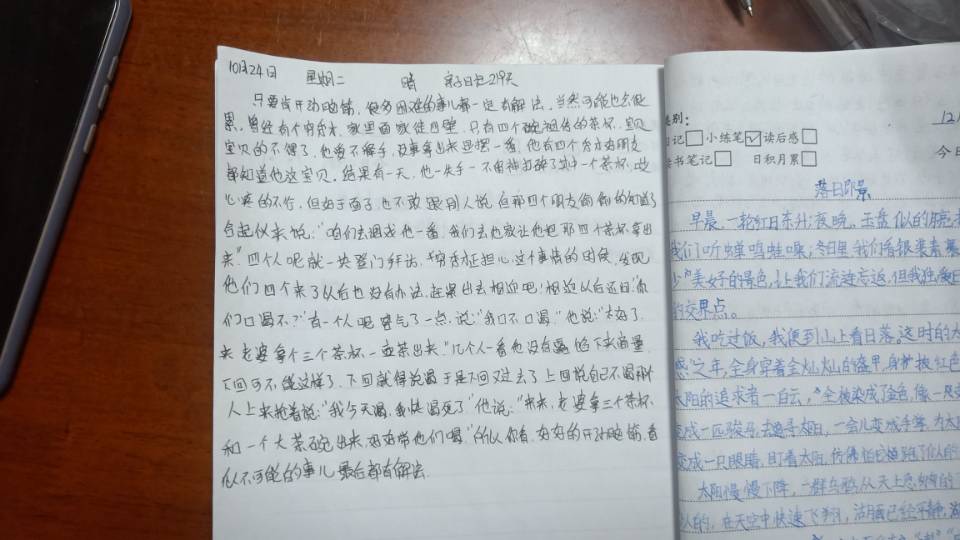 10月24日 星期二 晴 亲子日记219天
只要肯开动脑筋,很多困难的事儿都一定有解法,当然可能也会很
累,曾经有个穷秀才,家里面家徒四壁,只有四个祖传的茶杯,宝贝
宝贝的不得了,他爱不释手,没事拿出来一番,他有四个秀才朋友
都知道他这宝贝。结果有一天,他一失手一不留神打碎了其中一个茶杯,
心疼的不行,但由于面子也不敢跟别人说,但那四个朋友的知道了
合起伙来说:“咱们去调戏他一番,我们去他家让他把那四个茶杯拿出
来”四个人呢就一块登门拜访,穷秀才正担心这个事情的时候,发现
他们四个来了以后也没有办法,赶紧出去相迎吧!相迎以后还曰:“你
们口渴不?”有一个人呢客气了一点,说:“我口不口渴。”他说:“太好了,
来老婆拿个三个茶杯,一壶茶出来。”几个人一看他没有露馅下来商量
下回可不能这样了,下回就得说渴于是下回又过去了上回说自己不渴那
人上来抢着说:“我今天渴,我快渴死了”他说:“来来,老婆拿三个茶杯
和一个大茶碗出来,好好带他们喝”所以你看,好好的开动脑筋,看
似不可能的事儿最后都有解法.
类别: 12月
日记 小练笔 读后感
读书笔记 日积月累 今日
落日即景
早晨,一轮红日东升;夜晚,玉盘似的月亮
我们听蝉鸣蛙噪;冬日里,我们看银装素裹
少美好的景色,让我们流连忘返,但我独爱
的交界点。
我吃过饭,我便到山上看日落。这时的太
感之年,全身穿着金灿灿的盔甲,身披红色
太阳的追求者一白云,全被染成了金色,像一只
变成一匹骏马,去追寻太阳,一会儿变成手掌,为太
变成一只眼睛,盯着太阳,仿佛怕它
太阳慢慢下降,一群乌鸦从天上
认的,在天空中快速飞翔,湖面已经平静